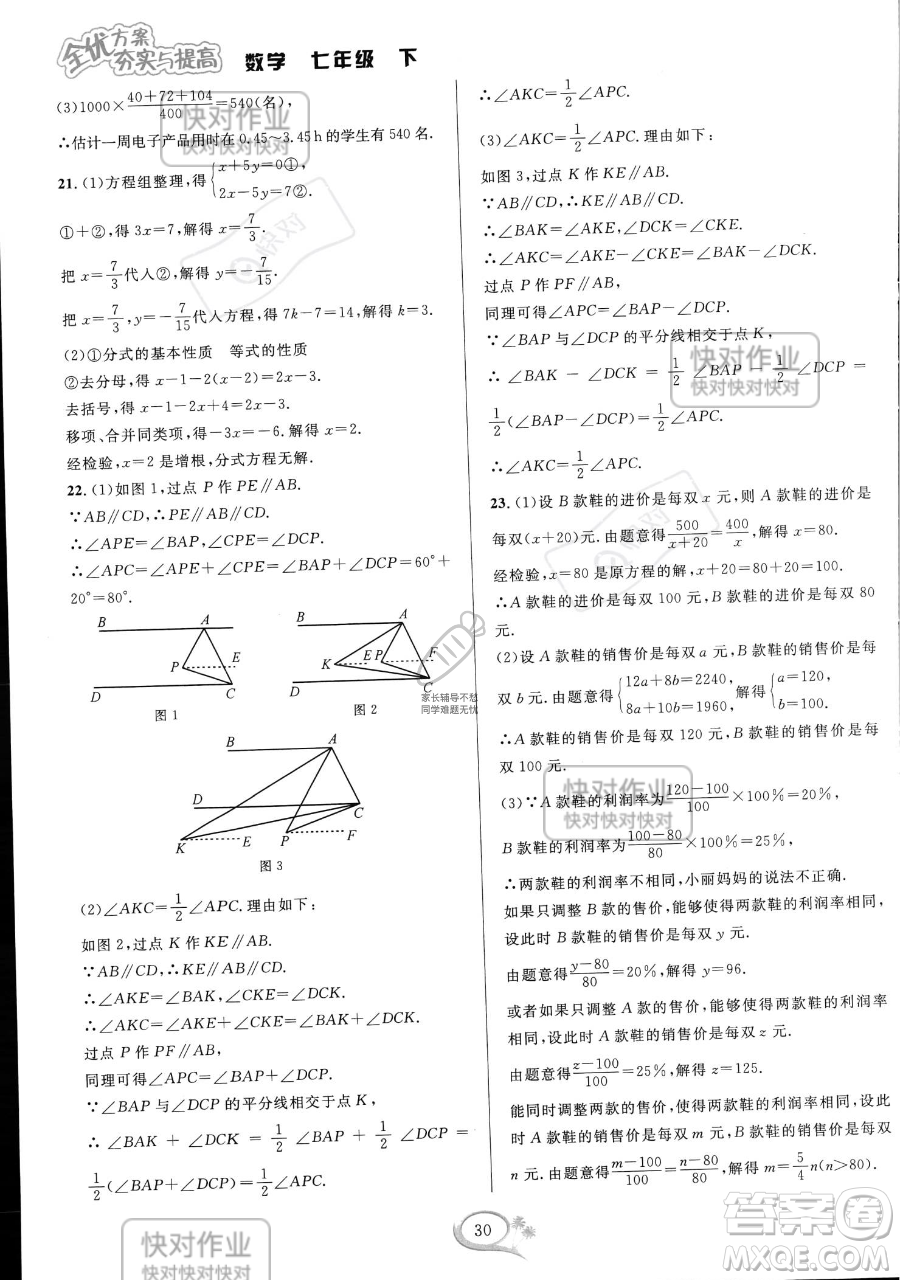 全优方案
夯实与提高 数学 七年级 下
(3)1000×\frac{40+72+104}{400}=540(名),
∴估计一周电子产品用时在 0.45~3.45h 的学生有 540 名.
21. (1)方程组整理,得{x+5y=0①,
2x-5y=7②.
①+②,得 3x=7,解得 x=\frac{7}{3}.
把 x=\frac{7}{3}代入②,解得 y=-\frac{7}{15}.
把 x=\frac{7}{3},y=-\frac{7}{15}代入方程,得 7k-7=14,解得 k=3.
(2)①分式的基本性质 等式的性质
②去分母,得 x-1-2(x-2)=-1.
去括号,得 x-1-2x+4=2.
移项、合并同类项,得-3x=-6.解得 x=2.
经检验,x=2 是增根,分式方程无解.
22. (1)如图 1,过点 P 作 PE∥AB.
∵AB∥CD,∴PE∥AB∥CD.
∴∠APE=∠BAP,∠CPE=∠DCP.
∴∠APC=∠APE+∠CPE=∠BAP+∠DCP=60°+
20°=80°.
B A
P E
D C
图 1
B A
K E P F
D C
图 2
B A
D C
K E P F
图 3
(2)∠AKC=\frac{1}{2}∠APC.理由如下:
如图 2,过点 K 作 KE∥AB.
∵AB∥CD,∴KE∥AB∥CD.
∴∠AKE=∠BAK,∠CKE=∠DCK.
∴∠AKC=∠AKE+∠CKE=∠BAK+∠DCK.
过点 P 作 PF∥AB,
同理可得∠APC=∠BAP+∠DCP.
∵∠BAP 与∠DCP 的平分线相交于点 K,
∴ ∠BAK + ∠DCK = \frac{1}{2} ∠BAP + \frac{1}{2} ∠DCP =
\frac{1}{2}(∠BAP+∠DCP)=\frac{1}{2}∠APC.
∴∠AKC=\frac{1}{2}∠APC.
(3)∠AKC=\frac{1}{2}∠APC.理由如下:
如图 3,过点 K 作 KE∥AB.
∵AB∥CD,∴KE∥AB∥CD.
∴∠BAK=∠AKE,∠DCK=∠CKE.
∴∠AKC=∠AKE-∠CKE=∠BAK-∠DCK.
过点 P 作 PF∥AB,
同理可得∠APC=∠BAP-∠DCP.
∵∠BAP 与∠DCP 的平分线相交于点 K,
∴ ∠BAK - ∠DCK = \frac{1}{2} ∠BAP - \frac{1}{2} ∠DCP =
\frac{1}{2}(∠BAP-∠DCP)=\frac{1}{2}∠APC.
∴∠AKC=\frac{1}{2}∠APC.
23. (1)设 B 款鞋的进价是每双 x 元,则 A 款鞋的进价是
每双(x+20)元.由题意得\frac{500}{x+20}=\frac{400}{x},解得 x=80.
经检验,x=80 是原方程的解,x+20=80+20=100.
∴A 款鞋的进价是每双 100 元,B 款鞋的进价是每双 80
元.
(2)设 A 款鞋的销售价是每双 a 元,B 款鞋的销售价是每
双 b 元.由题意得{12a+8b=2240, 解得{a=120,
8a+10b=1960, b=100.
∴A 款鞋的销售价是每双 120 元,B 款鞋的销售价是每
双 100 元.
(3)∵A 款鞋的利润率为\frac{120-100}{100}×100%=20%,
B 款鞋的利润率为\frac{100-80}{80}×100%=25%,
∴两款鞋的利润率不相同,小丽妈妈的说法不正确.
如果只调整 B 款的售价,能够使得两款鞋的利润率相同,
设此时 B 款鞋的销售价是每双 y 元.
由题意得\frac{y-80}{80}=20%,解得 y=96.
或者如果只调整 A 款的售价,能够使得两款鞋的利润率
相同,设此时 A 款鞋的销售价是每双 z 元.
由题意得\frac{z-100}{100}=25%,解得 z=125.
能同时调整两款的售价,使得两款鞋的利润率相同,设此
时 A 款鞋的销售价是每双 m 元,B 款鞋的销售价是每双
n 元.由题意得\frac{m-100}{100}=\frac{n-80}{80},解得 m=\frac{5}{4}n(n>80).
30
快对作业
快对快对快对
快对作业
快对快对快对
快对作业
快对快对快对
快对作业
快对快对快对
快对
快对
家长辅导不愁
同学难题无忧
答案卷
MXQE.COM